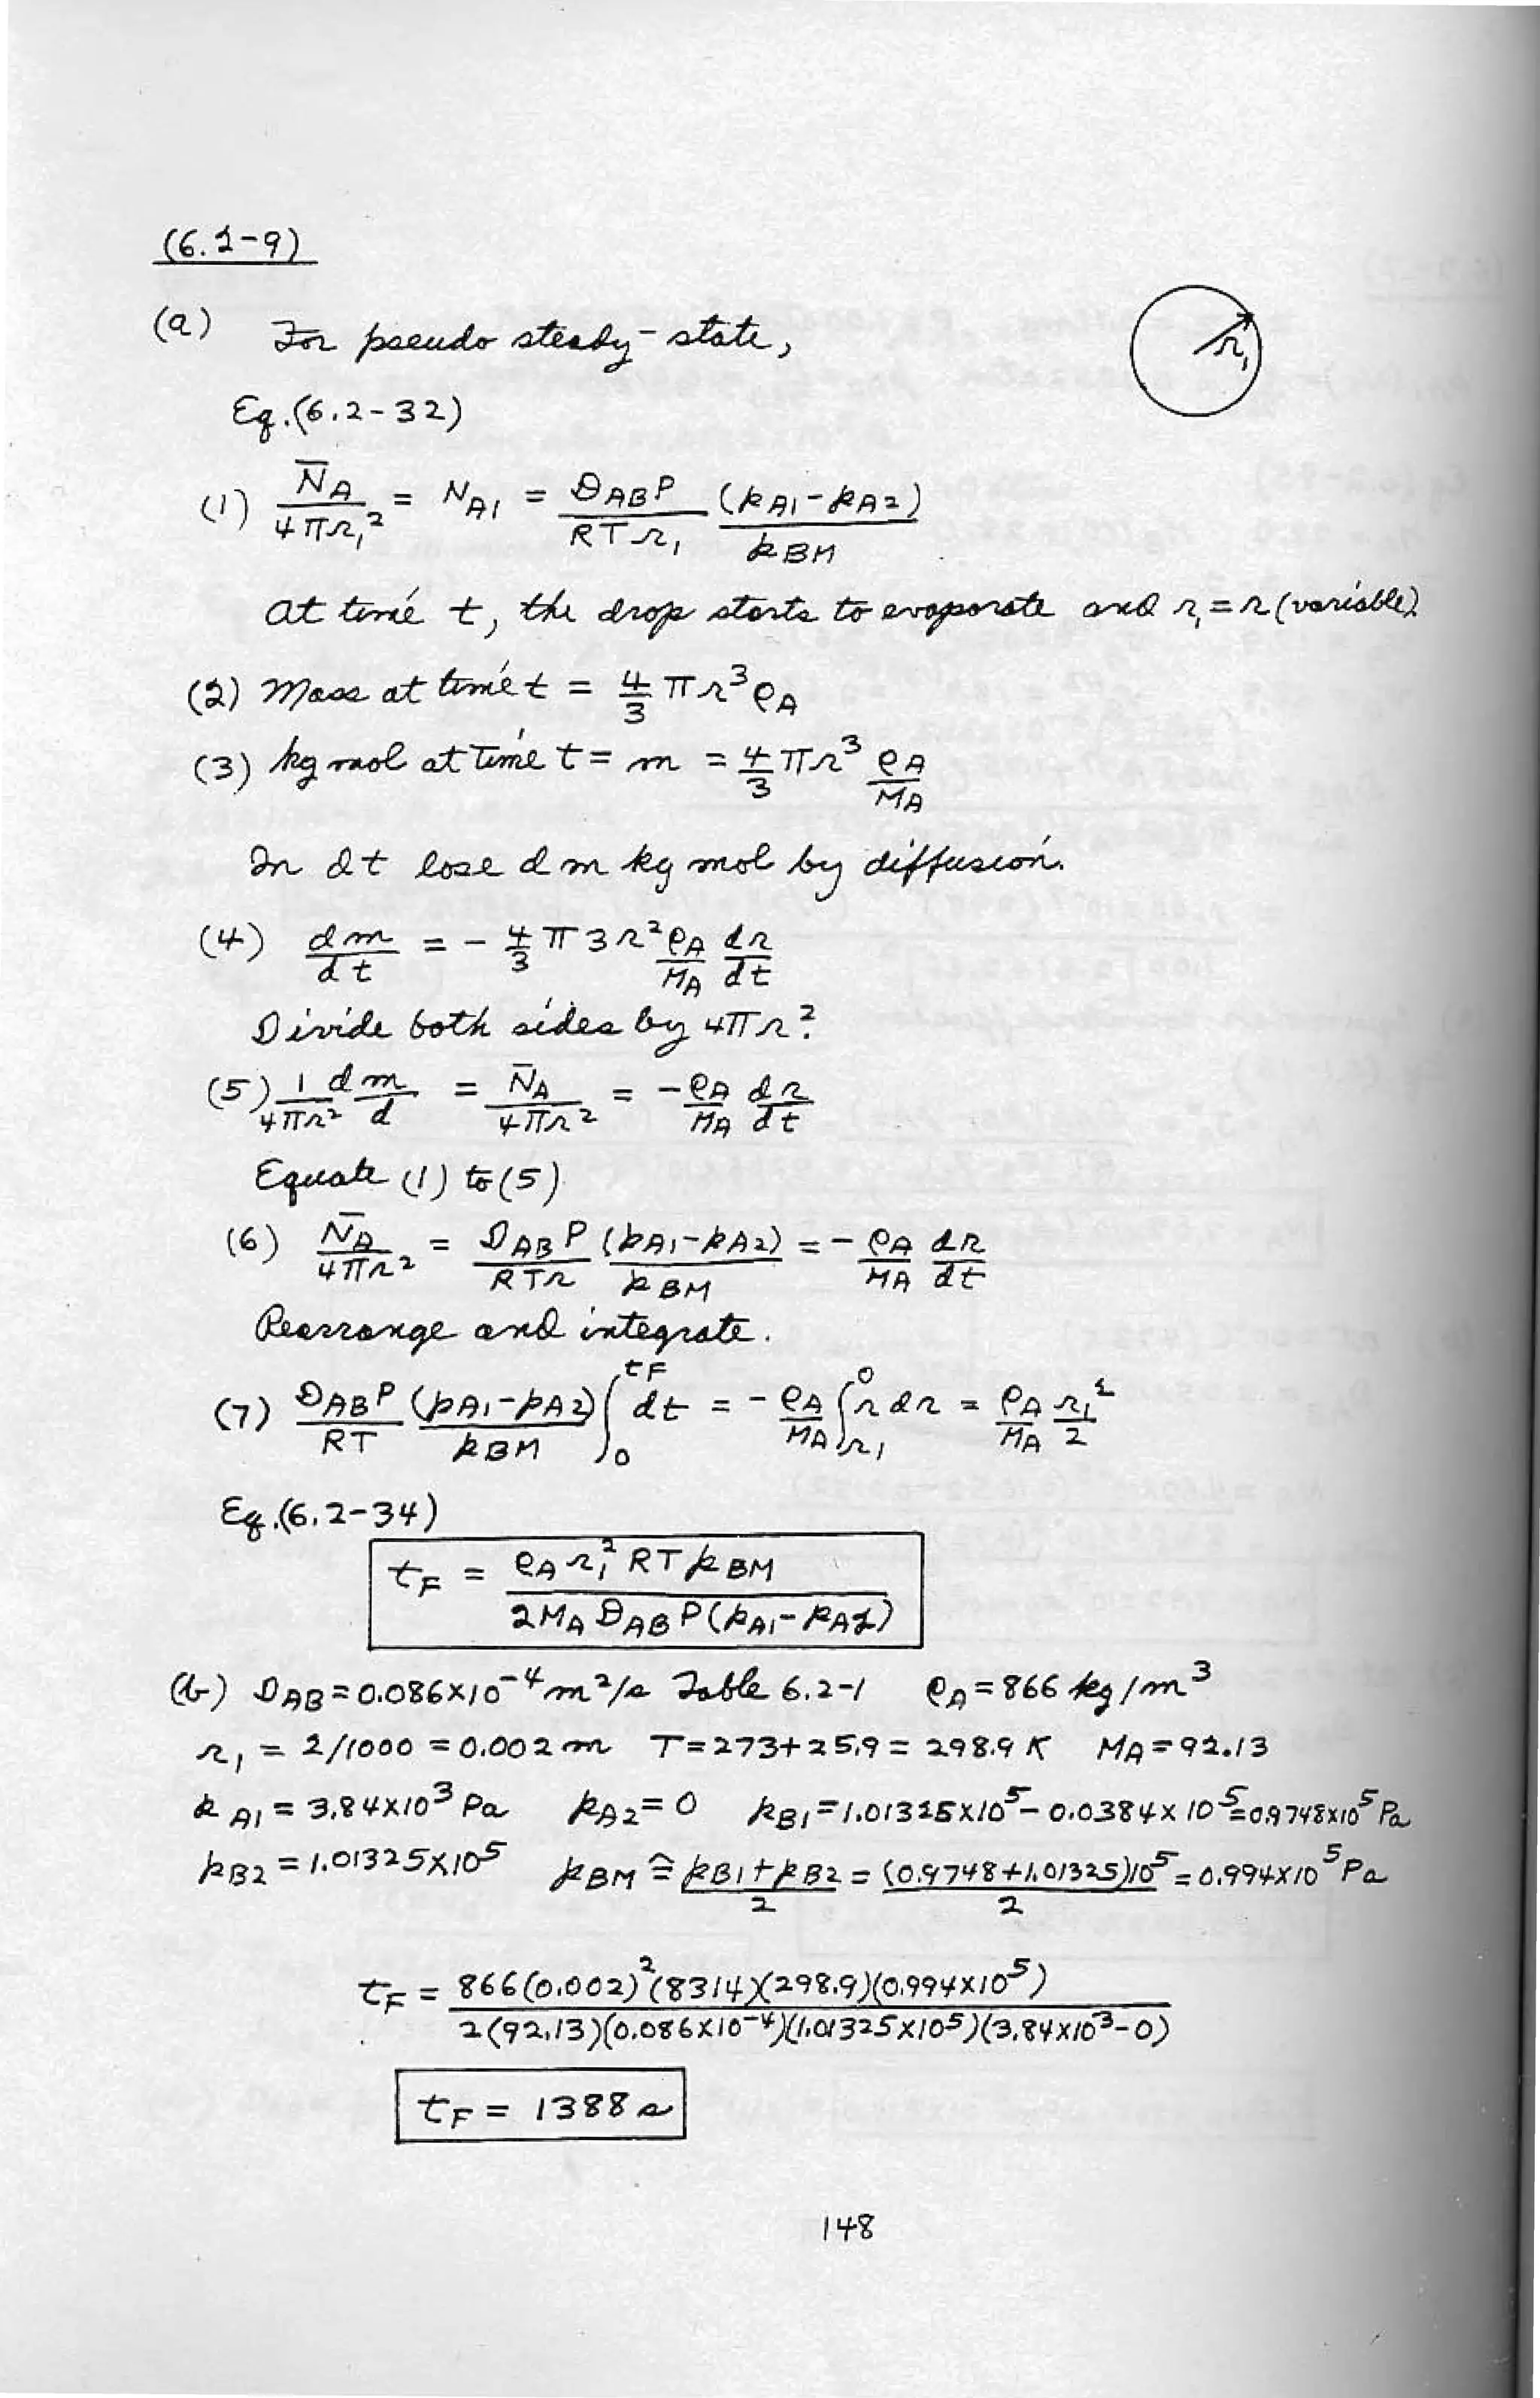 (6.2-9)
(a) For pseudo steady-state,
r₁
Eq.(6.2-32)
(1) N̄A/4πr₁² = NA1 = DAB P/RTr₁ (pA1-pA2)/pBM
At time t, the drop starts to evaporate and r₁ = r (variable).
(2) Mass at time t = 4/3 πr³ρA
(3) kg mol at time t = m = 4/3 πr³ ρA/MA
In dt lose dm kg mol by diffusion.
(4) dm/dt = - 4/3 π3r² ρA/MA dr/dt
Divide both sides by 4πr².
(5) 1/4πr² dm/d = N̄A/4πr² = -ρA/MA dr/dt
Equate (1) to (5)
(6) N̄A/4πr² = DAB P/RTr (pA1-pA2)/pBM = - ρA/MA dr/dt
Rearrange and integrate.
(7) DAB P/RT (pA1-pA2)/pBM ∫₀^tF dt = - ρA/MA ∫r₁^0 r dr = ρA/MA r₁²/2
Eq.(6.2-34)
tF = ρA r₁² RT pBM / 2MA DAB P(pA1-pA2)
(b) DAB = 0.086×10⁻⁴ m²/s Table 6.2-1 ρA = 866 kg/m³
r₁ = 2/1000 = 0.002 m T = 273+25.9 = 298.9 K MA = 92.13
pA1 = 3.84×10³ Pa pA2 = 0 pB1 = 1.01325×10⁵ - 0.0384×10⁵ = 0.9748×10⁵ Pa
pB2 = 1.01325×10⁵ pBM ≅ pB1+pB2/2 = (0.9748+1.01325)10⁵/2 = 0.994×10⁵ Pa
tF = 866(0.002)²(8314)(298.9)(0.994×10⁵) / 2(92.13)(0.086×10⁻⁴)(1.01325×10⁵)(3.84×10³-0)
tF = 1388 s
148